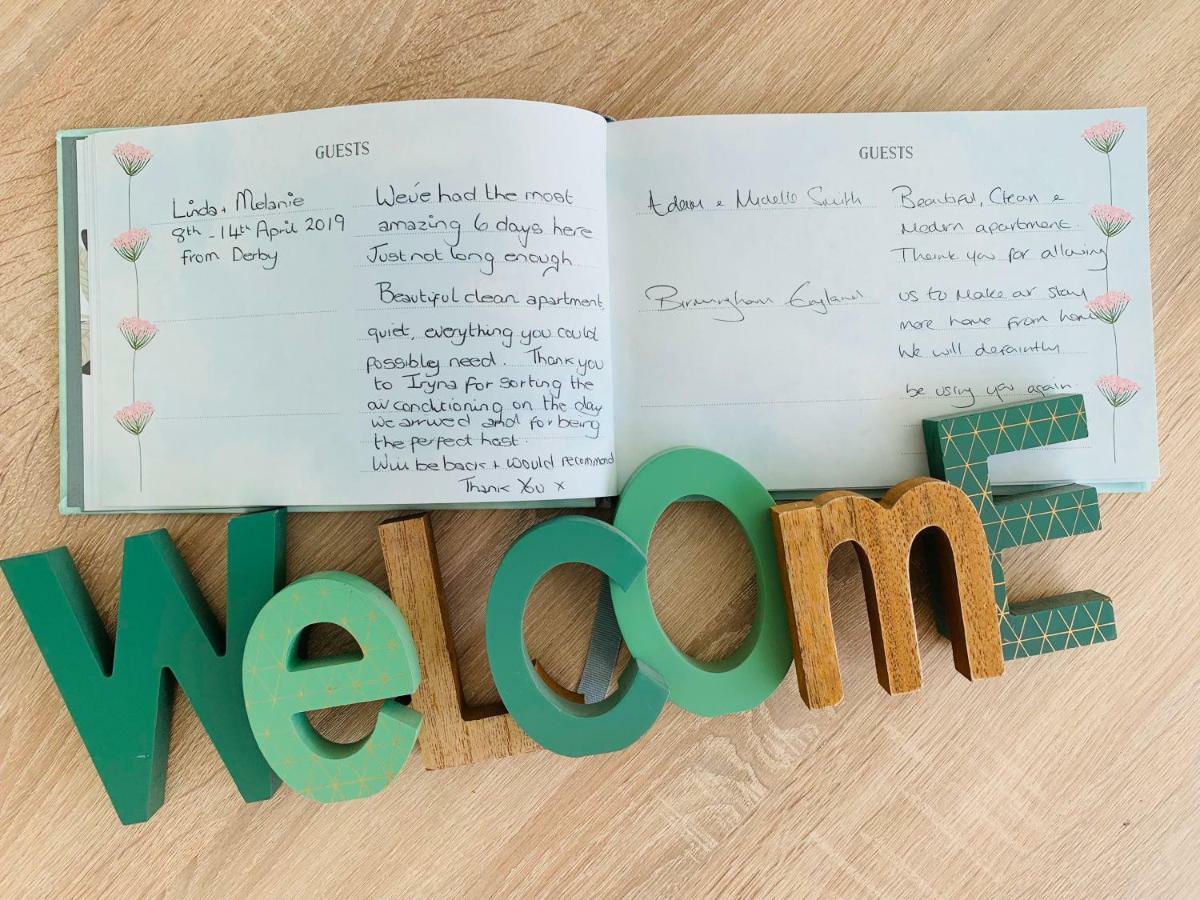 GUESTS
Linda + Melanie
8th - 14th April 2019
from Derby
We've had the most
amazing 6 days here
Just not long enough
Beautiful clean apartment,
quiet, everything you could
possibly need. Thank you
to Iryna for sorting the
air conditioning on the day
we arrived and for being
the perfect host.
Will be back + would recommend
Thank You x
GUESTS
Adam & Michelle Smith
Birmingham England
Beautiful, Clean &
Modern apartment.
Thank you for allowing
us to make our stay
more home from home
We will defaintly
be using you again.
WeLCOmE